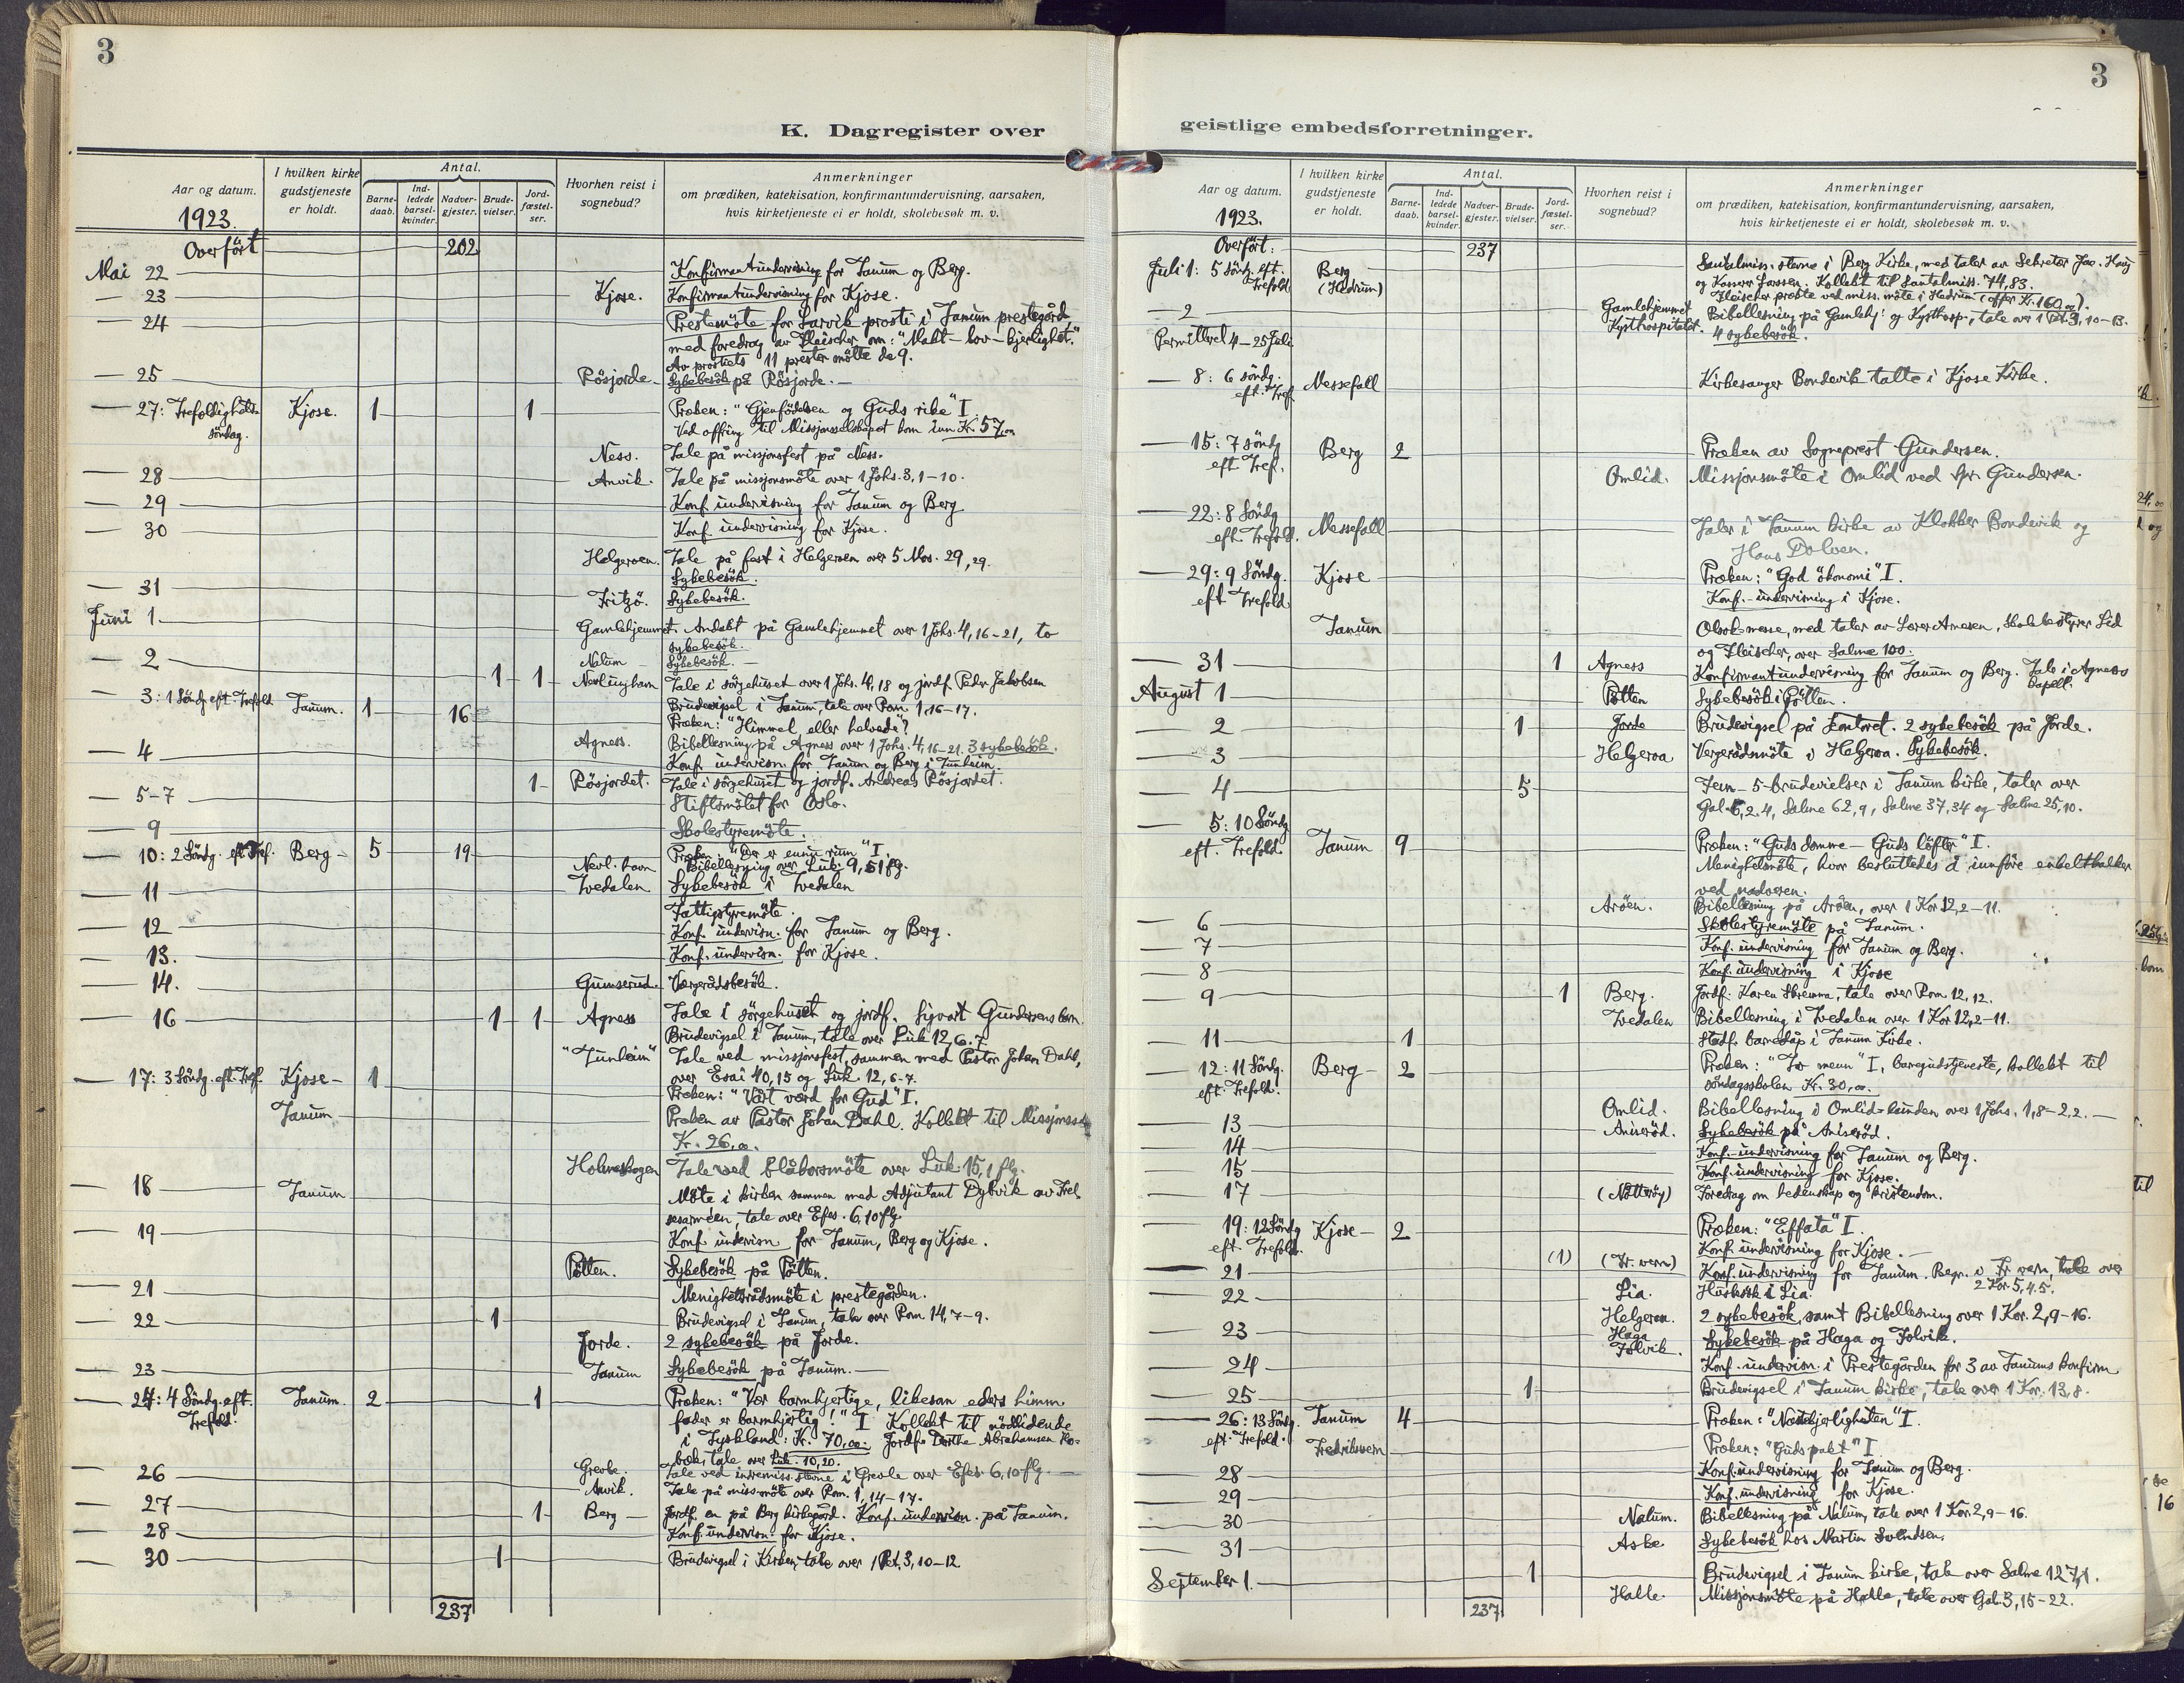 3
K. Dagregister over
Aar og datum.
1923.
I hvilken kirke gudstjeneste er holdt.
Antal.
Barne-daab.
Ind-ledede barsel-kvinder.
Nadver-gjester.
Brude-vielser.
Jord-fæstel-ser.
Hvorhen reist i sognebud?
Anmerkninger
om prædiken, katekisation, konfirmantundervisning, aarsaken,
hvis kirketjeneste ei er holdt, skolebesøk m. v.
Overført 202
Mai 22 Konfirmantundervisning for Tanum og Berg.
23 Kjose. Konfirmantundervisning for Kjose.
24 Prestemöte for Larvik prosti i Tanum prestegård
med foredrag av Fleischer om: "Makt – lov – kjerlighet."
Av prostiets 11 prester mötte de 9.
25 Rösjorde Sykebesök på Rösjorde.
27: Trefoldighets söndag. Kjose. 1 1 Præken: "Gjenfödelsen og Guds rike" I.
Ved offring til Missjonsselskapet kom inn Kr. 57,00
Ness. Tale på missjonsfest på Ness.
28 Anvik. Tale på missjonsmöte over 1 Johs. 3, 1–10.
29 Konf. undervisning for Tanum og Berg
30 Konf. undervisning for Kjose.
Helgeroen. Tale på fest i Helgeroen over 5 Mos. 29, 29.
Sykebesök.
31 Fritzö. Sykebesök.
Juni 1 Gamlehjemmet. Andakt på Gamlehjemmet over 1 Johs. 4, 16–21, to
sykebesök.
2 Nalum Sykebesök.
1 1 Nevlunghavn Tale i sörgehuset over 1 Johs. 4, 18 og jordf. Peder Jakobsen
Brudevigsel i Tanum, tale over Rom. 1, 16–17.
3: 1 Söndg eft. Trefold. Tanum. 1 16 Præken: "Himmel eller helvede"?
Agness. Bibellesning på Agness over 1 Johs. 4, 16–21. 3 sykebesök.
4 Konf. undervisn. for Tanum og Berg i Tunheim.
1 Rösjordet. Tale i sörgehuset og jordf. Andreas Rösjordet.
5–7 Stiftsmötet for Oslo.
9 Skolestyremöte.
10: 2 Söndg. eft. Tref. Berg 5 19 Præken: "Der er ennu rum" I.
Nevl. havn Bibellesning over Luk. 9, 51 flg.
11 Tvedalen Sykebesök i Tvedalen
Fattigstyremöte.
12 Konf. undervisn. for Tanum og Berg.
13. Konf. undervisn. for Kjose.
14. Gumserud. Værgerådsbesök.
16 1 1 Agness Tale i sörgehuset og jordf. Sigvart Gundersens barn.
Brudevigsel i Tanum, tale over Luk 12, 6-7
"Tunheim" Tale ved missjonsfest, sammen med Pastor Johan Dahl,
over Esai 40, 15 og Luk. 12, 6-7.
17: 3 Söndg. eft. Tref. Kjose 1 Præken: "Vårt værd for Gud" I.
Tanum. Præken av Pastor Johan Dahl. Kollekt til Missjonss
Kr. 26,00.
Holmeskogen Tale ved blåkorsmöte over Luk. 15, 1 flg.
18 Tanum Möte i kirken sammen med Adjutant Dybvik av Frel-
sesarméen, tale over Efes. 6, 10 flg
19 Konf. undervisn for Tanum, Berg og Kjose.
Pötten. Sykebesök på Pötten.
21 Menighetsrådsmöte i prestegården.
22 1 Brudevigsel i Tanum, tale over Rom. 14, 7–9.
Jorde. 2 sykebesök på Jorde.
23 Tanum Sykebesök på Tanum.
24: 4 Söndg. eft. Trefold. Tanum. 2 1 Præken: "Vær barmhjertige, likesom eders himm.
fader er barmhjertig!" I Kollekt til nödlidende
i Tyskland: Kr. 70,00. Jordf. Dorthe Abrahamsen Ro-
bæk, tale over Luk. 10, 20.
26 Grevle. Tale ved indremiss. stevne i Grevle over Efes. 6, 10 flg.
Anvik. Tale på miss-möte over Rom. 1, 14–17.
27 1 Berg Jordf. en på Berg kirkegård. Konf. undervisn. på Tanum.
28 Konf. undervisn. for Kjose.
30 1 Brudevigsel i Kirken, tale over 1 Pet. 3, 10–12
237
3
geistlige embedsforretninger.
Aar og datum.
1923.
I hvilken kirke gudstjeneste er holdt.
Antal.
Barne-daab.
Ind-ledede barsel-kvinder.
Nadver-gjester.
Brude-vielser.
Jord-fæstel-ser.
Hvorhen reist i sognebud?
Anmerkninger
om prædiken, katekisation, konfirmantundervisning, aarsaken,
hvis kirketjeneste ei er holdt, skolebesøk m. v.
Overført: 237
Juli 1: 5 söndg. eft. Trefold. Berg (Hedrum) Santalmiss. stevne i Berg Kirke, med taler av Sekretær Jac. Haug
og Kasserer Larssen. Kollekt til Santalmiss. 74,83.
Fleischer prekte ved miss. möte i Hedrum (offer Kr. 160,00).
2 Gamlehjemmet Kysthospitalet. Bibellesning på Gamlehj. og Kysthosp., tale over 1 Pet. 3, 10–13.
4 sykebesök.
Permittert 4–25 Juli
8: 6 söndg. eft. Tref. Messefall Kirkesanger Bondevik talte i Kjose Kirke.
15: 7 söndg eft Tref. Berg 2 Præken av Sogneprest Gundersen.
Omlid. Missjonsmöte i Omlid ved Spr. Gundersen.
22: 8 Söndg eft. Trefold. Messefall Taler i Tanum kirke av Klokker Bondevik og
Hans Dolven.
29: 9 Söndg. eft Trefold. Kjose Præken: "God ökonomi" I.
Konf.-undervisning i Kjose.
Tanum Olsok-messe, med taler av Lærer Arnesen, Skolebestyrer Lid
og Fleischer, over Salme 100.
31 1 Agness Konfirmantundervisning for Tanum og Berg. Tale i Agness
Kapell.
August 1 Pötten Sykebesök i Pötten.
2 1 Jorde Brudevigsel på Kontoret. 2 sykebesök på Jorde.
3 Helgeroa Vergerådsmöte i Helgeroa. Sykebesök.
4 5 Fem – 5 – brudevielser i Tanum kirke, taler over
Gal. 6, 2. 4, Salme 62, 9, Salme 37, 34 og Salme 25, 10.
5: 10 Söndg eft. Trefold. Tanum 9 Præken: "Guds domme – Guds löfter" I.
Menighetsmöte, hvor besluttedes å innföre enkeltkalker
ved nadveren.
Aröen. Bibellesning på Aröen, over 1 Kor 12, 2–11.
6 Skolestyremöte på Tanum.
7 Konf. undervisning for Tanum og Berg.
8 Konf. undervisning i Kjose
9 1 Berg. Jordf. Karen Skremma, tale over Rom. 12, 12.
Tvedalen Bibellesning i Tvedalen over 1 Kor 12, 2–11.
11 1 Stadf. barnedåp i Tanum Kirke.
12: 11 Söndg. eft. Trefold. Berg 2 Præken: "To menn" I, barnegudstjeneste, kollekt til
söndagsskolen Kr. 30,00.
Omlid. Bibellesning i Omlid-lunden over 1 Johs. 1, 8–2, 2.
13 Aniseröd. Sykebesök på Aniseröd.
14 Konf.-undervisning for Tanum og Berg.
15 Konf. undervisning for Kjose.
17 (Nötteröy) Foredrag om hedenskap og kristendom.
19: 12 Söndg eft. Trefold. Kjose 2 Præken: "Effata" I
Konf. undervisning for Kjose.
21 (1) (Fr. vern) Konf. undervisning for Tanum. Begr. i Fr vern, tale over
2 Kor. 5, 4. 5.
22 Lia. Husbesök i Lia.
Helgeroa. 2 sykebesök, samt Bibellesning over 1 Kor. 2, 9–16.
23 Haga Folvik. Sykebesök på Haga og Folvik.
24 Konf. undervisn. i Prestegården for 3 av Tanums konfirm
25 1 Brudevigsel i Tanum kirke, tale over 1 Kor. 13, 8.
26: 13 Söndg. eft. Trefold. Tanum 4 Præken: "Næstekjerligheten" I.
Fredriksvern Præken: "Guds pakt" I
28 Konf. undervisning for Tanum og Berg.
29 Konf. undervisning for Kjose.
30 Nalum. Bibellesning på Nalum, tale over 1 Kor. 2, 9–16.
31 Aske Sykebesök hos Martin Svendsen.
September 1. 1 Brudevigsel i Tanum kirke, tale over Salme 127, 1.
Halle. Missjonsmöte på Halle, tale over Gal. 3, 15–22.
237